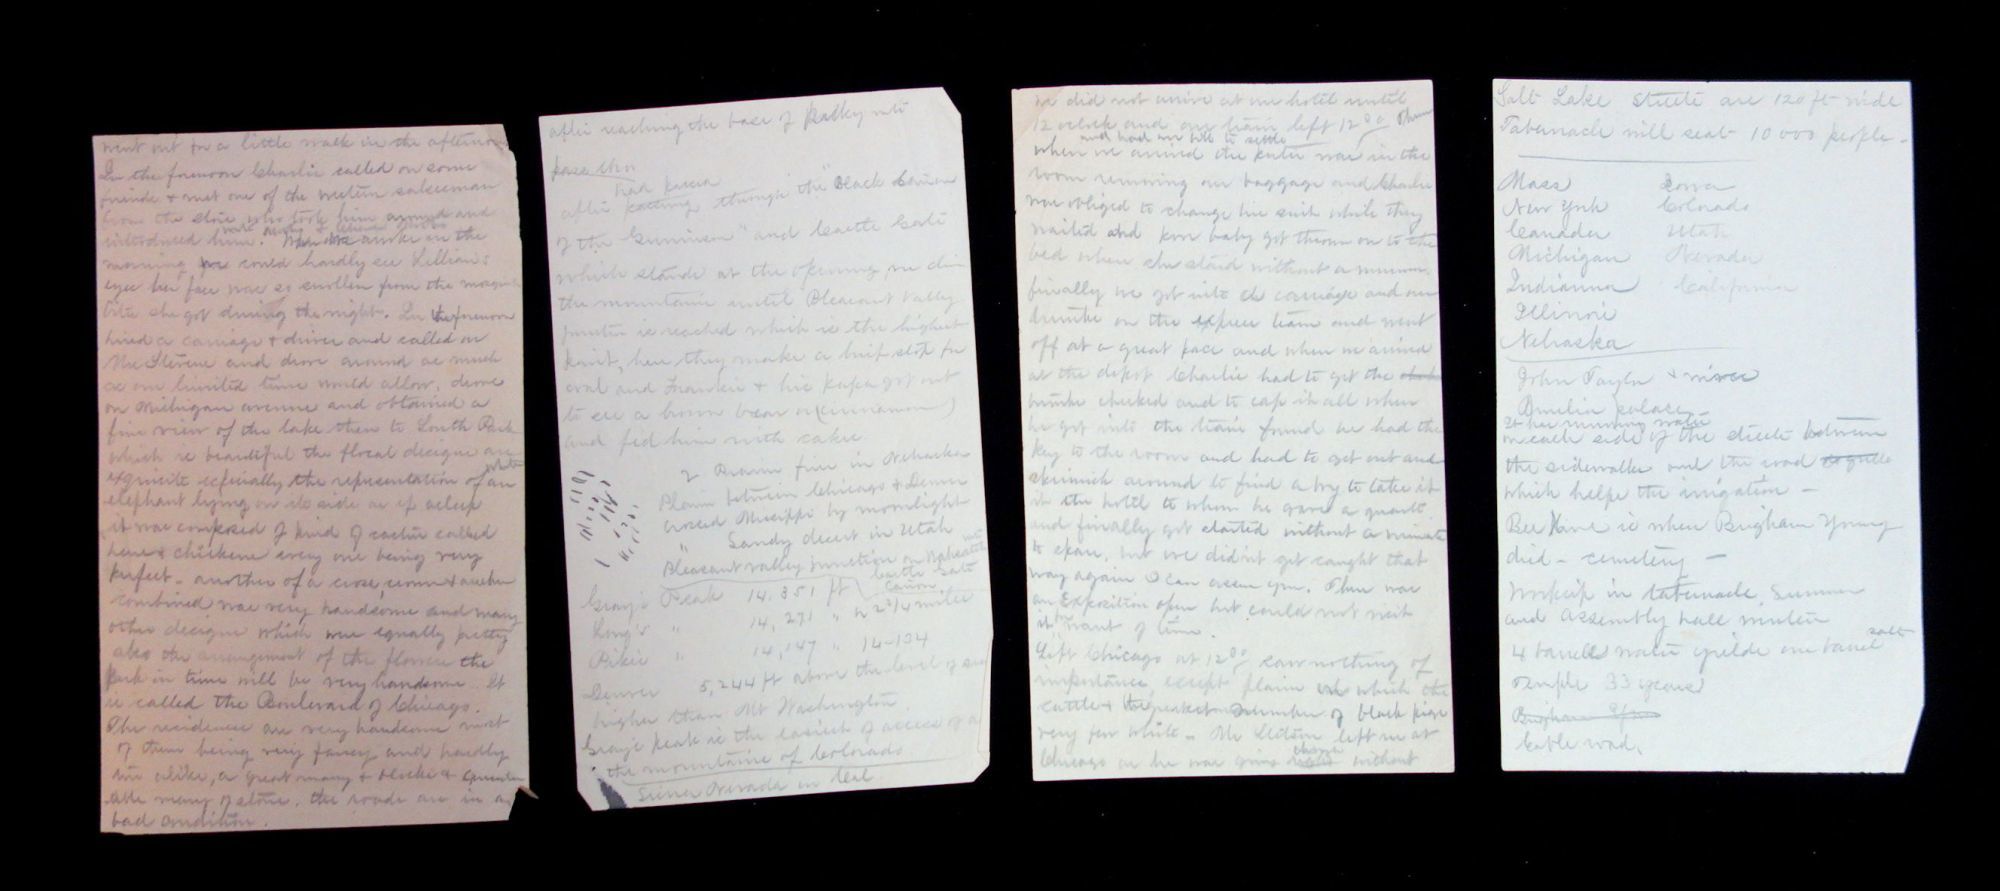 went out for a little walk in the afternoon
In the forenoon Charlie called on some
friends & met one of the western salesman
from the store who took him around and
introduced him.
awoke in the
morning we could hardly see Lillian's
eyes her face was so swollen from the mosquito
bite she got during the night. In the forenoon
hired a carriage & driver and called on
Mrs Stevens and drove around as much
as our limited time would allow. drove
on Michigan avenue and obtained a
fine view of the lake then to South Park
which is beautiful the floral designs are
exquisite especially the representation of an
white
elephant lying on its side as if asleep
it was composed of kind of cactus called
hens & chickens every one being very
perfect - another of a cross, crown & anchor
combined was very handsome and many
other designs which were equally pretty
also the arrangement of the flowers the
park in time will be very handsome. It
is called the Boulevard of Chicago.
The residences are very handsome most
of them being very fancy and hardly
two alike, a great many
many of stone. the roads are in a
bad condition.
after reaching the base of valley into
pass thro
had passed
after passing through the "Black Canon
of the Gunnison" and Castle Gate
which stands at the opening we climb
the mountains until Pleasant Valley
junction is reached which is the highest
point, here they make a brief stop for
coal and Frankie & his papa got out
to see a brown bear or (cinnamon)
and fed him with cakes
2 Prairie fires in Nebraska
Plains between Chicago & Denver
crossed Missippi by moonlight
" Sandy desert in Utah
Pleasant valley junction on Wahsatch
Castle Gate
Canon
Gray's Peak 14,351 ft
Long's " 14,271 " w 2 3/4 miles
Pikes " 14,147 " 14-134
Denver 5,244 ft above the level of sea
higher than Mt Washington.
Grays peak is the easiest of access of a
the mountains of Colorado
Sierra Nevada in Cal
we did not arrive at our hotel until
12 oclock and our train left 12 00 then
and had our bill to settle
when we arrived the porter was in the
room removing our baggage and Charlie
was obliged to change his suit while they
waited and poor baby got thrown on to the
bed where she staid without a murmur.
finally we got into the carriage and our
trunks on the express team and went
off at a great pace and when we arrived
at the depot Charlie had to get the
trunks checked and to cap it all when
he got into the train found we had the
key to the room and had to get out and
skirmish around to find a boy to take it
to the hotel to whom he gave a quarter
and finally got started without a minute
to spare, but we didn't get caught that
way again I can assure you. There was
an Exposition open but could not visit
it for want of time.
Left Chicago at 12 00 saw nothing of
importance except plains on which the
cattle & the greatest number of black pigs
very few white - Mr Stetson left us at
Chicago as he was going without
Salt Lake streets are 120 ft wide
Tabanacle will seat 10 000 people -
Mass Iowa
New York Colorado
Canada Utah
Michigan Nevada
Indianna California
Illinois
Nebraska
John Taylor & wives
Amelia palace
running water
on each side of the streets between
the sidewalks and the road
which helps the irrigation -
Bee Hive is where Brigham Young
died - cemetery -
Worship in tabernacle, summer
and assembly hall winter
salt
4 barrels water yields one barrel
temple 33 years
Brigham
Cable road.